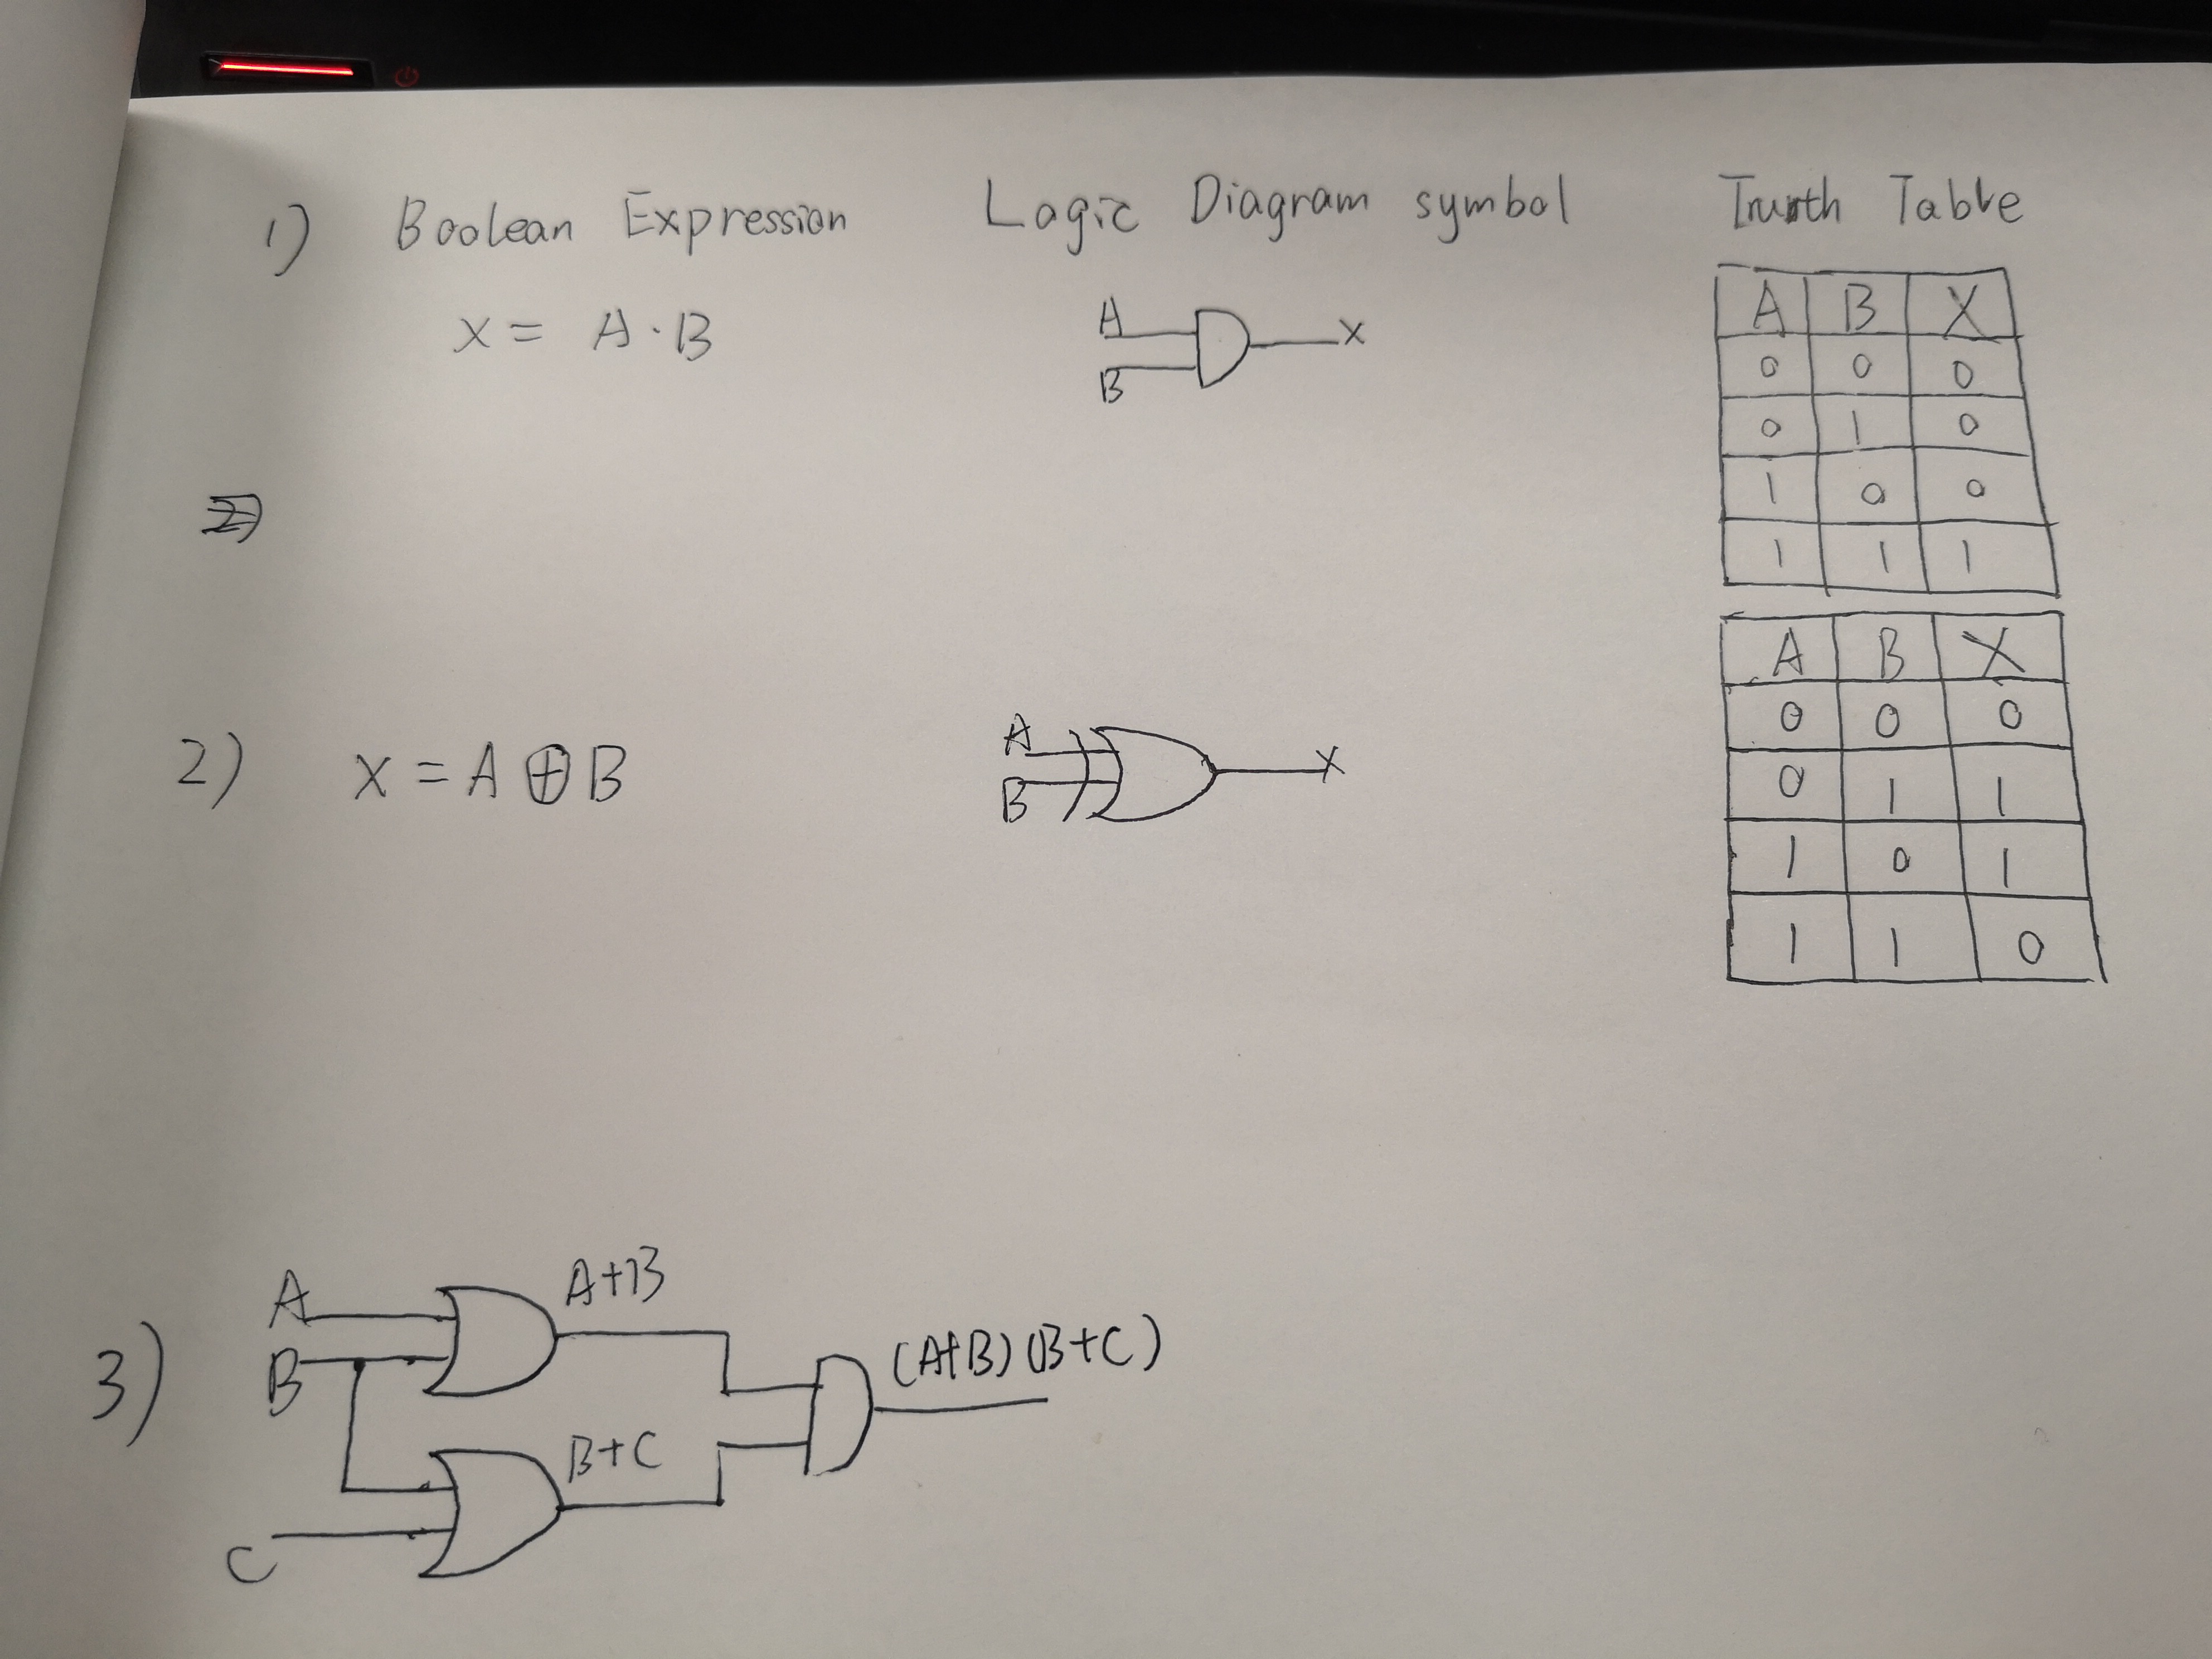 1) Boolean Expression Logic Diagram symbol Truth Table
X = A · B
A
B
X
A B X
0 0 0
0 1 0
1 0 0
1 1 1
2)
2) X = A ⊕ B
A
B
X
A B X
0 0 0
0 1 1
1 0 1
1 1 0
3)
A
B
C
A+B
B+C
(A+B)(B+C)